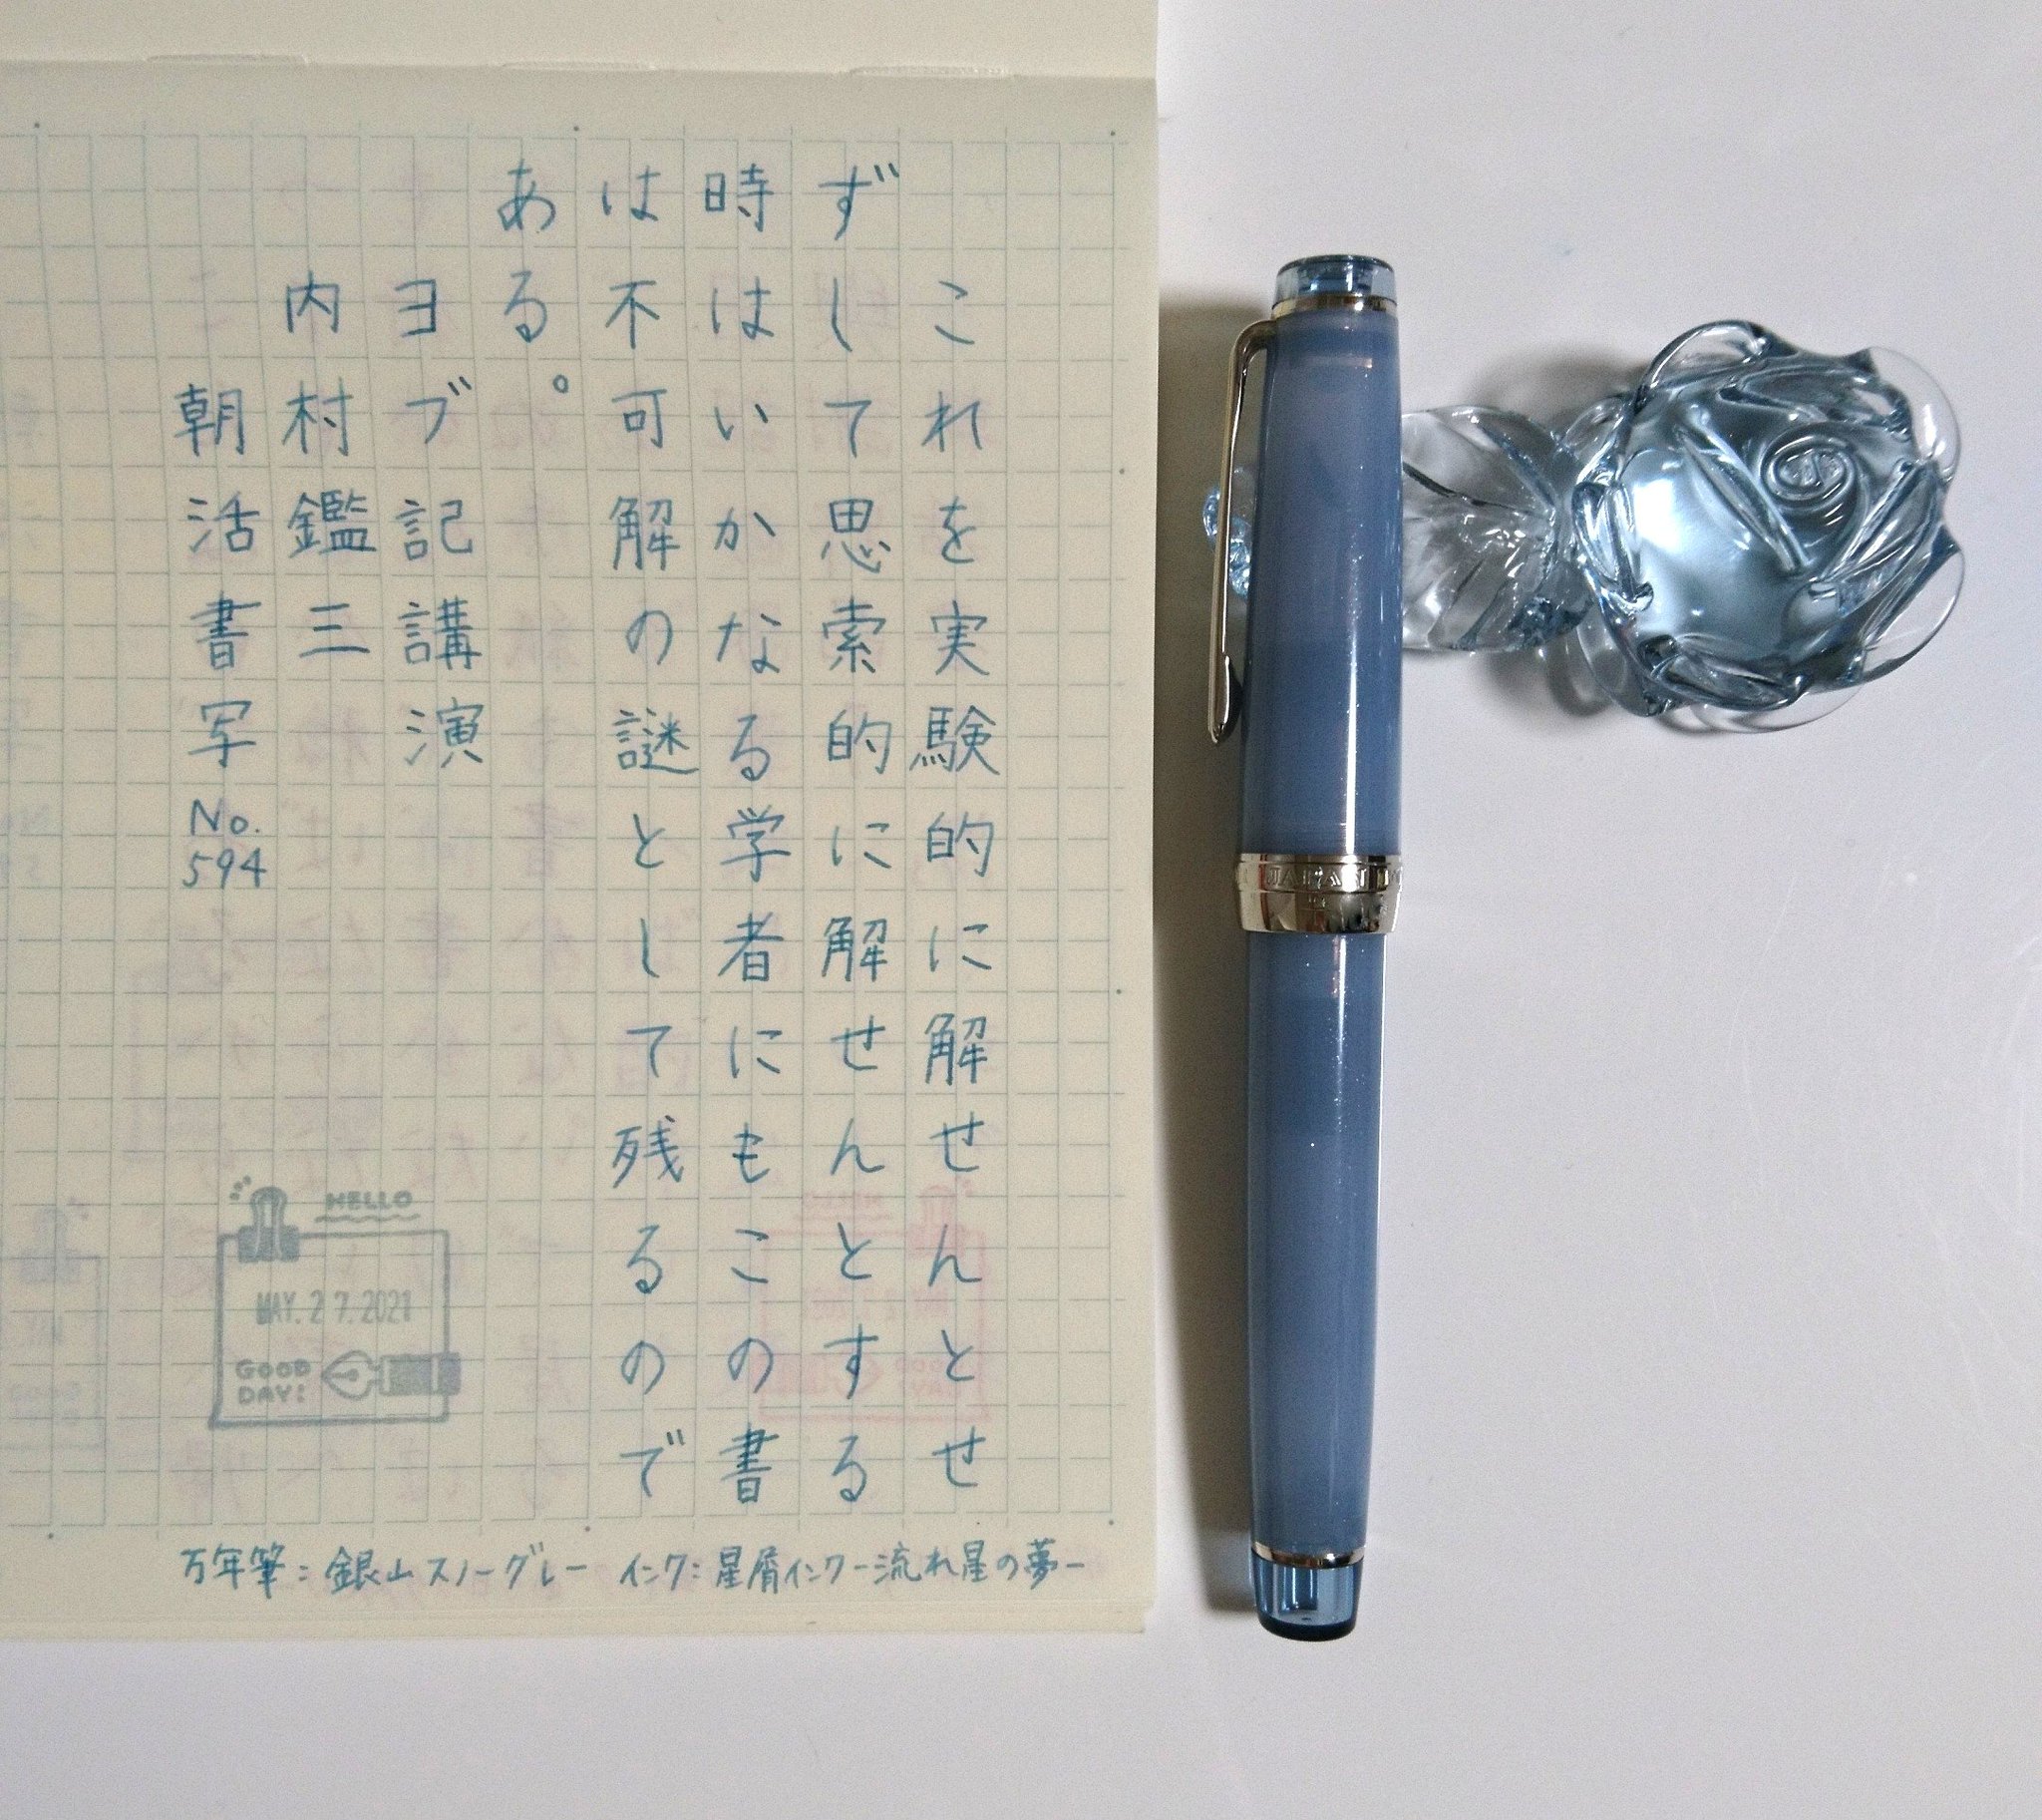 これを実験的に解せんとせ
ずして思索的に解せんとする
時はいかなる学者にもこの書
は不可解の謎として残るので
ある。
ヨブ記講演
内村鑑三
朝活書写
No.
594
HELLO
MAY.27.2021
GOOD
DAY!
万年筆:銀山スノーグレー インク:星屑インクー流れ星の夢ー
JAPAN